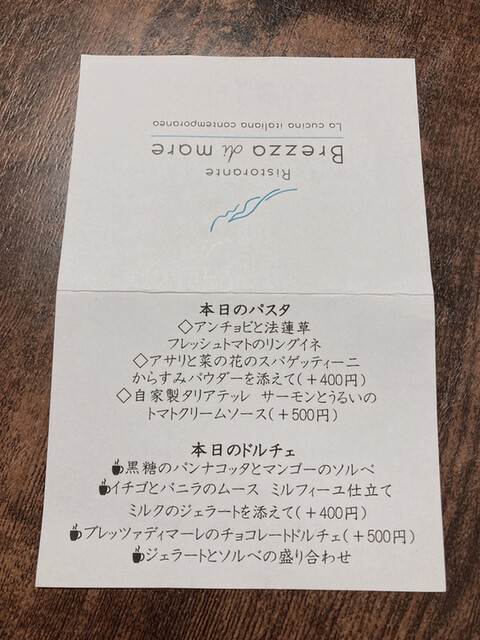 Ristorante
Brezza di mare
La cucina italiana contemporanea
本日のパスタ
◇アンチョビと法蓮草
フレッシュトマトのリングイネ
◇アサリと菜の花のスパゲッティーニ
からすみパウダーを添えて(+400円)
◇自家製タリアテッレ サーモンとうるいの
トマトクリームソース(+500円)
本日のドルチェ
☕黒糖のパンナコッタとマンゴーのソルベ
☕イチゴとバニラのムース ミルフィーユ仕立て
ミルクのジェラートを添えて(+400円)
☕ブレッツァディマーレのチョコレートドルチェ(+500円)
☕ジェラートとソルベの盛り合わせ